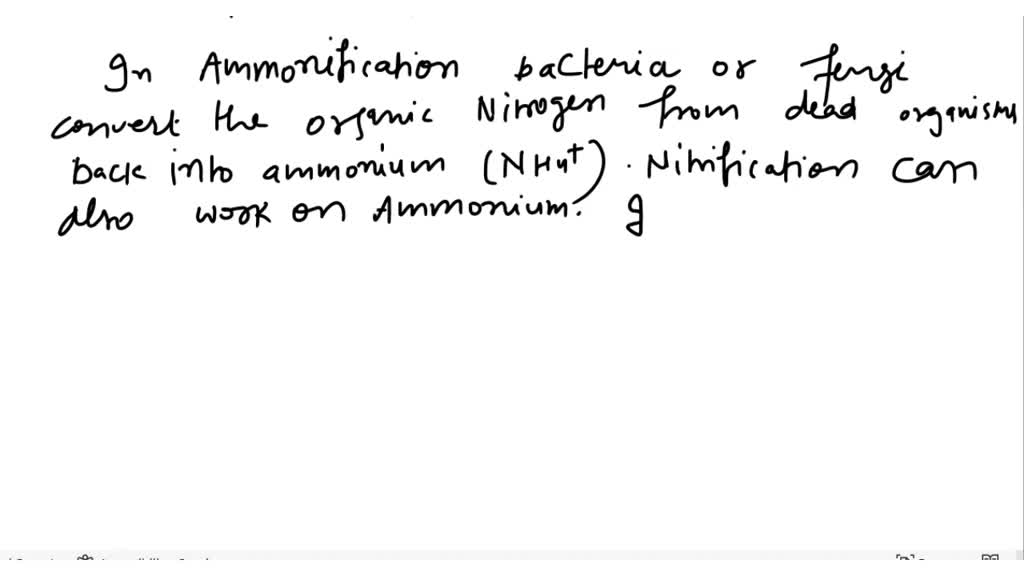 In Ammonification bacteria or fungi
convert the organic Nitrogen from dead organisms
back into ammonium (NH4+). Nitrification can
also work on Ammonium. I